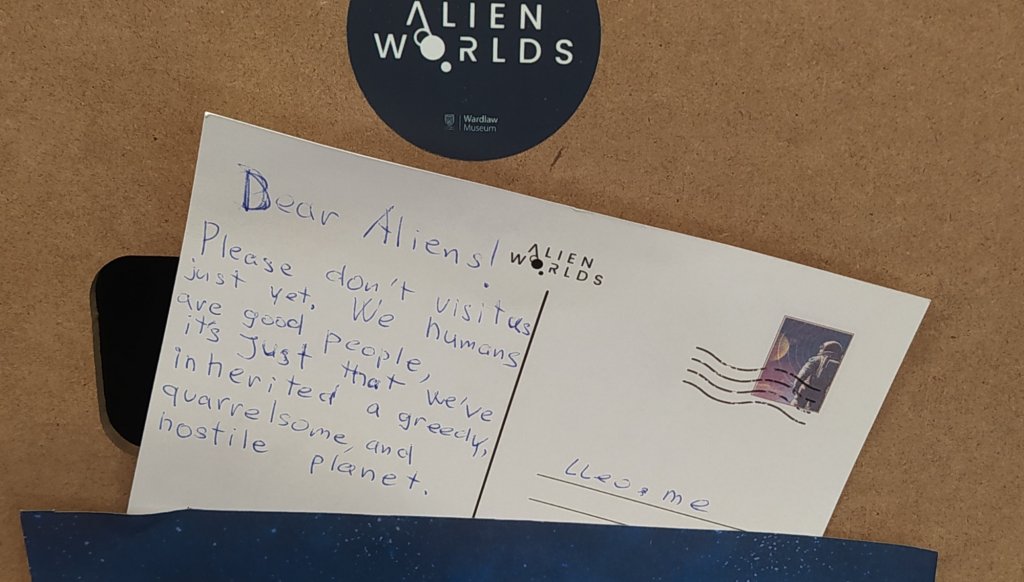 ALIEN
WORLDS
Wardlaw
Museum
Dear Aliens!
Please don't visit us
just yet. We humans
are good people,
it's just that we've
inherited a greedy,
quarrelsome, and
hostile planet.
ALIEN
WORLDS
LLeo.me